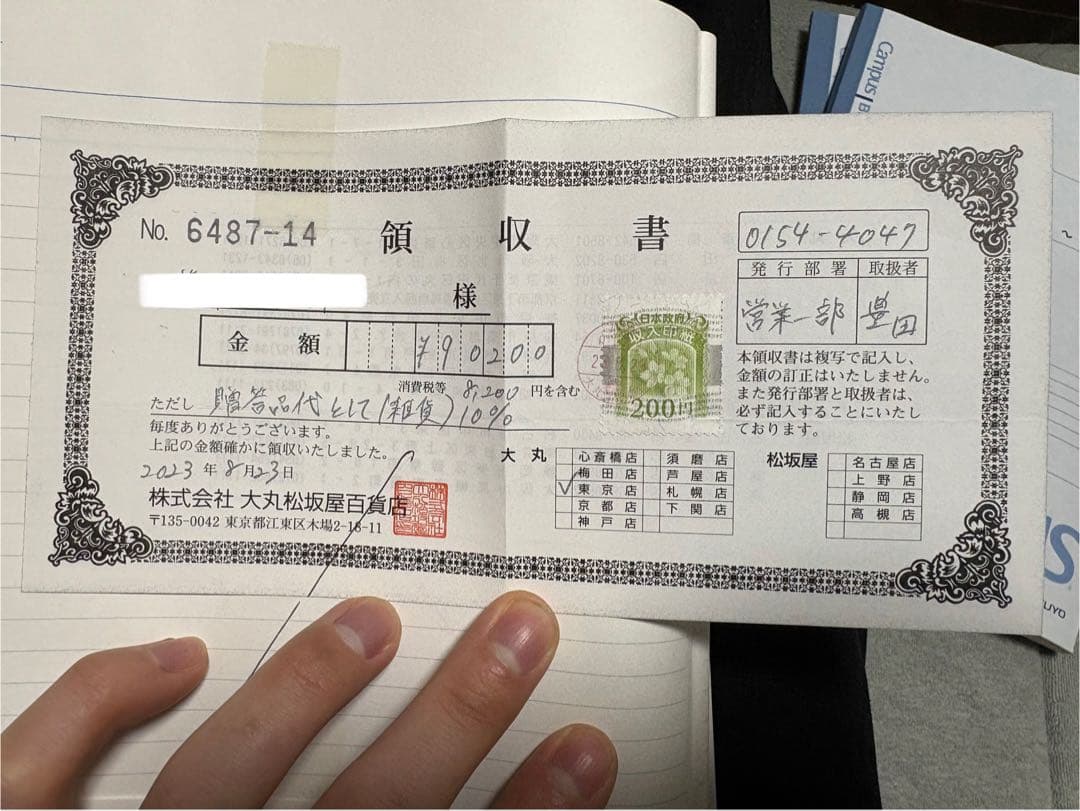 Campus
No. 6487-14
領収書
0154-4047
発行部署 取扱者
営業一部 豊田
様
金額 ¥90200
消費税等 8,200 円を含む
ただし 贈答品代として(雑貨)10%
毎度ありがとうございます。
上記の金額確かに領収いたしました。
2023年8月23日
株式会社 大丸松坂屋百貨店
〒135-0042 東京都江東区木場2-18-11
日本政府
収入印紙
200円
本領収書は複写で記入し、
金額の訂正はいたしません。
また発行部署と取扱者は、
必ず記入することにいたし
ております。
大丸
心斎橋店 須磨店
梅田店 芦屋店
✓東京店 札幌店
京都店 下関店
神戸店
松坂屋
名古屋店
上野店
静岡店
高槻店